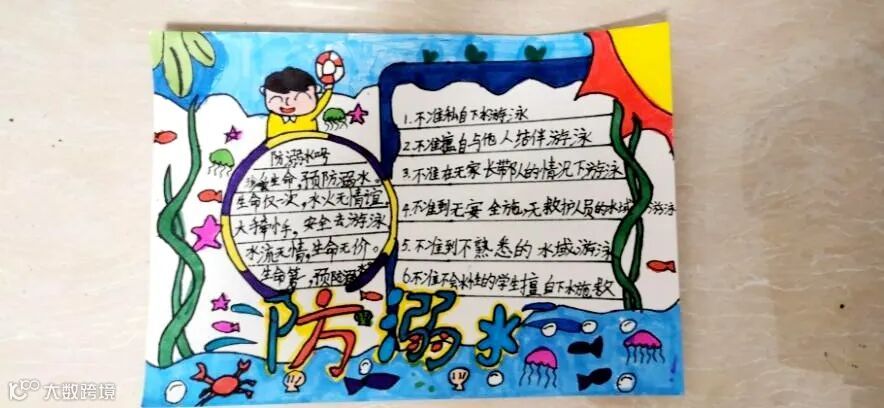 防溺水
珍爱生命,预防溺水。
生命仅一次,水火无情谊。
大手牵小手,安全去游泳
水流无情,生命无价。
生命第一,预防溺水
1.不准私自下水游泳
2.不准擅自与他人结伴游泳
3.不准在无家长带队的情况下游泳
4.不准到无安全施、无救护人员的水域游泳
5.不准到不熟悉的水域游泳
6.不准不会水性的学生擅自下水施救
防溺水
大数跨境